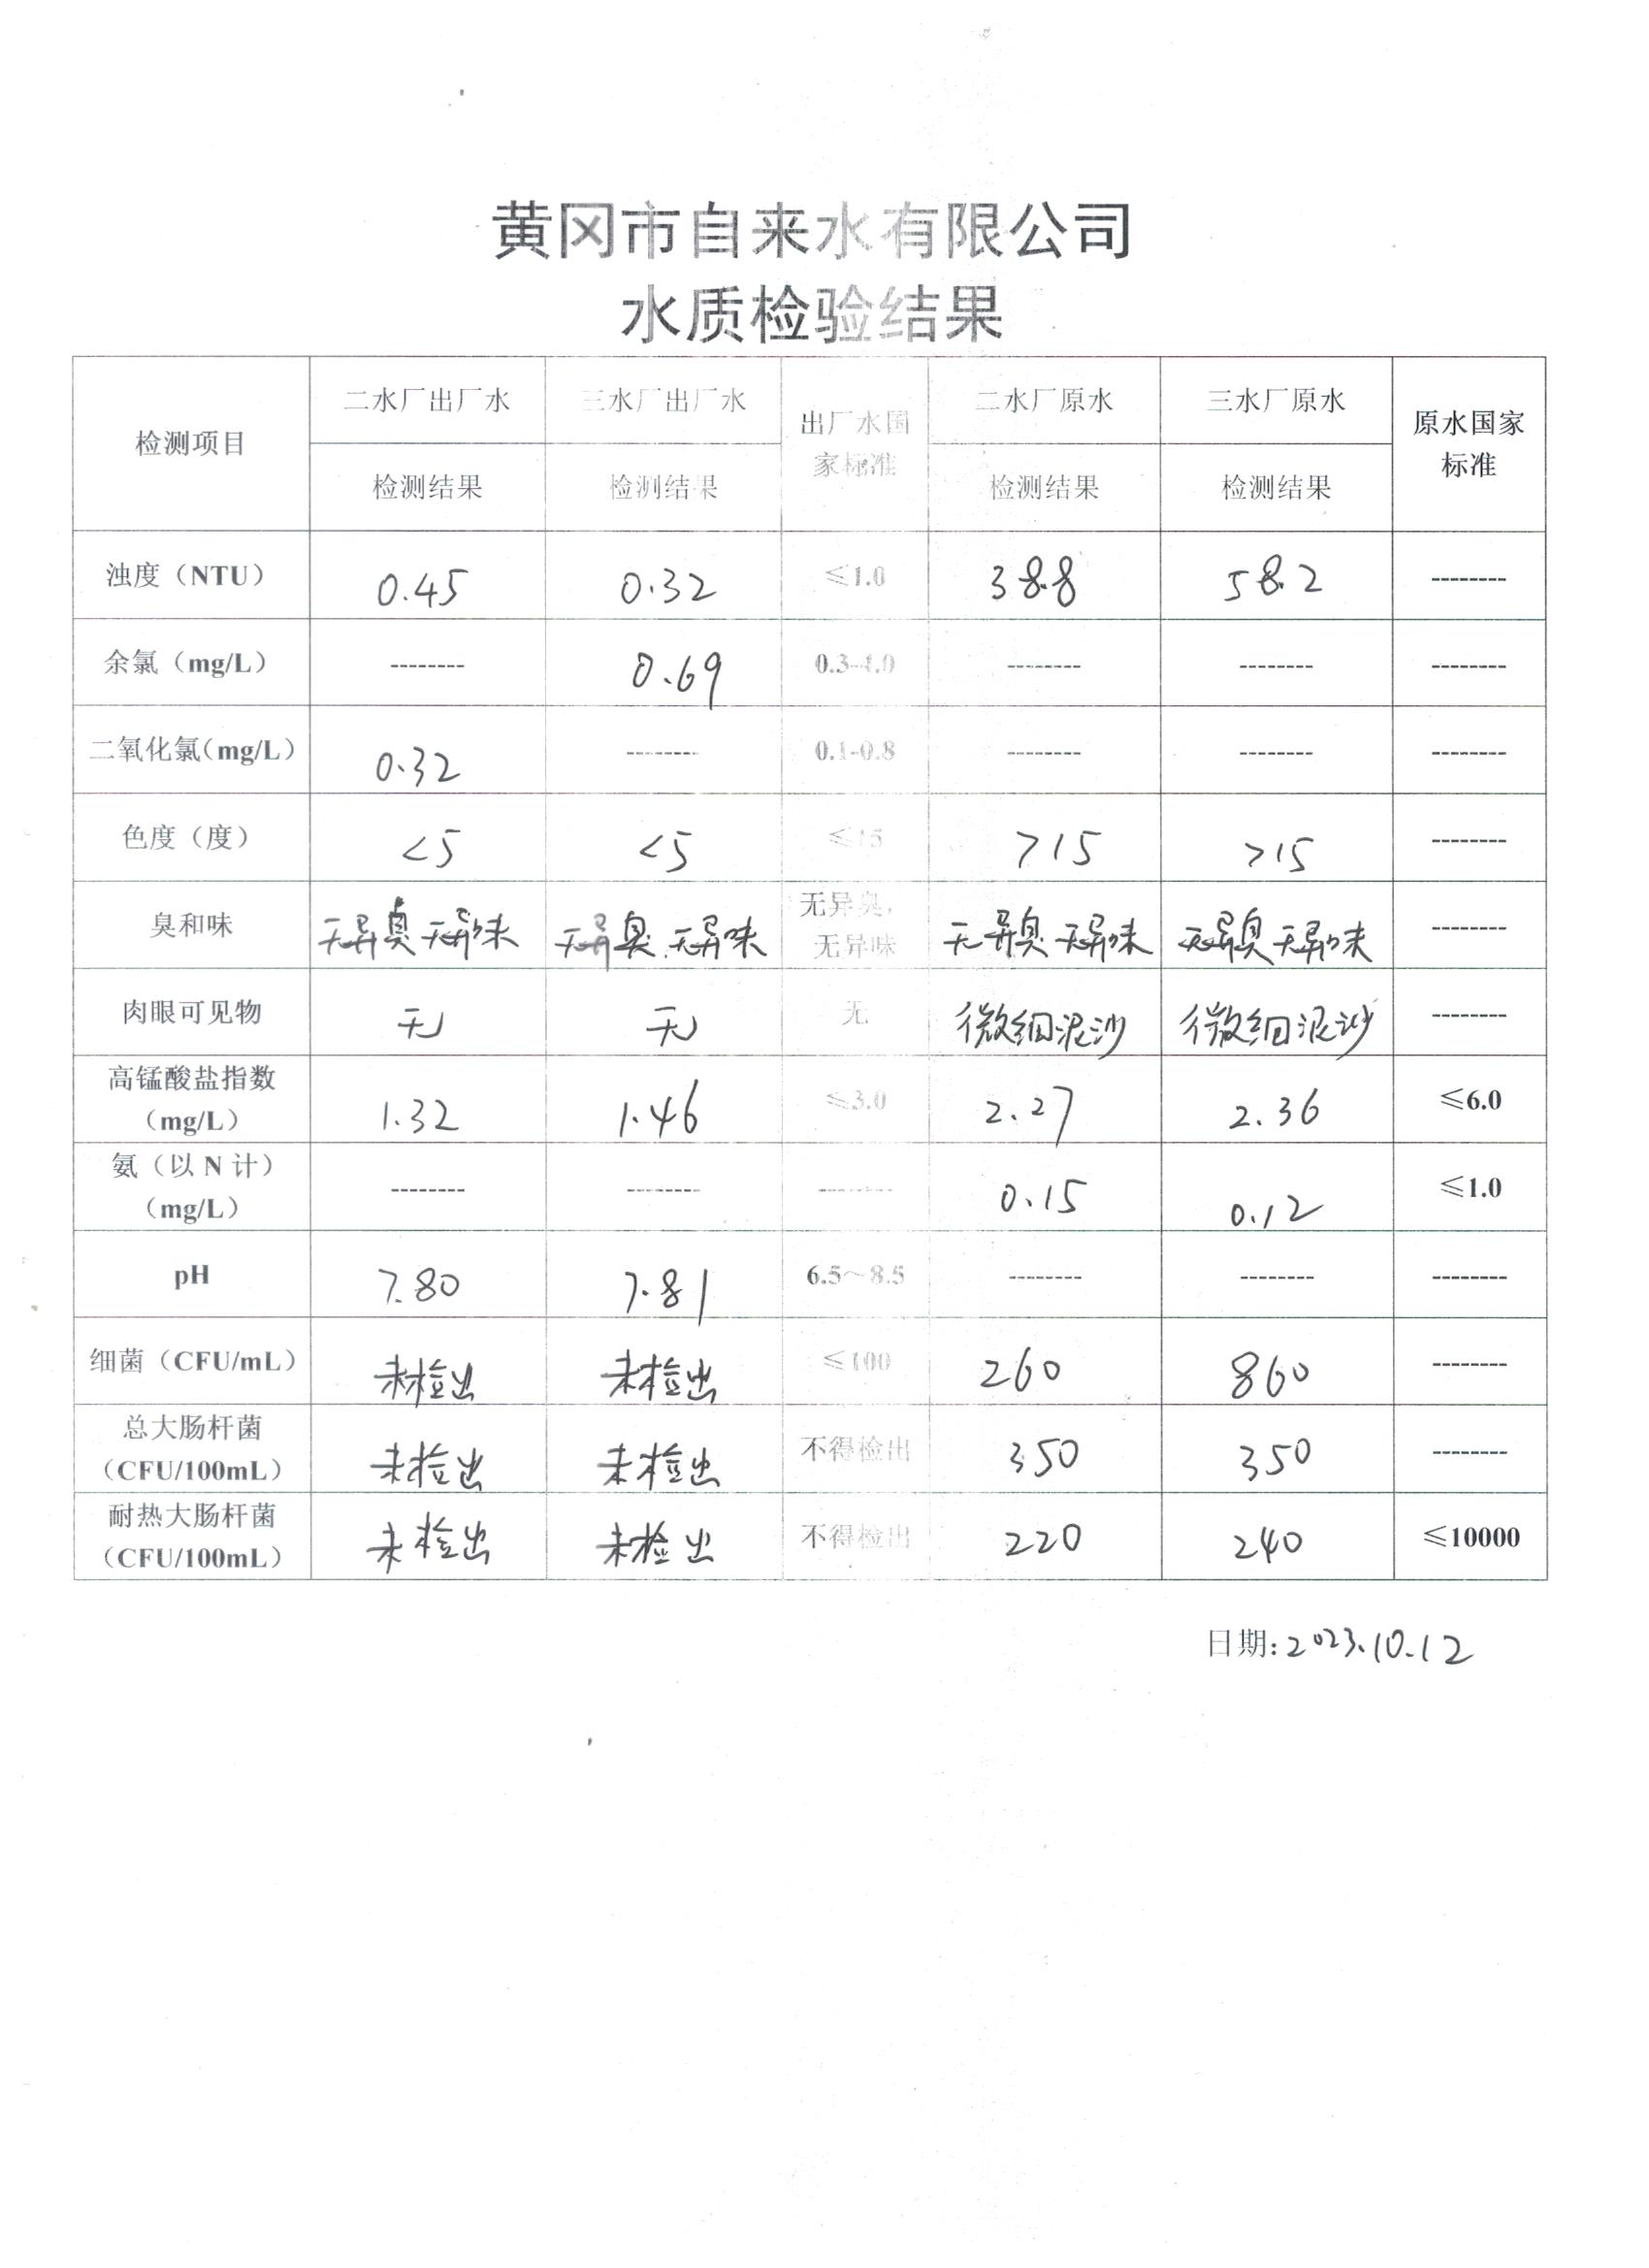 黄冈市自来水有限公司
水质检验结果
检测项目 二水厂出厂水 三水厂出厂水 出厂水国家标准 二水厂原水 三水厂原水 原水国家标准
检测结果 检测结果 检测结果 检测结果
浊度（NTU） 0.45 0.32 ≤1.0 38.8 58.2 --------
余氯（mg/L） -------- 0.69 0.3-4.0 -------- -------- --------
二氧化氯（mg/L） 0.32 -------- 0.1-0.8 -------- -------- --------
色度（度） <5 <5 ≤15 >15 >15 --------
臭和味 无异臭 无异味 无异臭.无异味 无异臭，无异味 无异臭 无异味 无异臭 无异味 --------
肉眼可见物 无 无 无 微细泥沙 微细泥沙 --------
高锰酸盐指数（mg/L） 1.32 1.46 ≤3.0 2.27 2.36 ≤6.0
氨（以 N 计）（mg/L） -------- -------- -------- 0.15 0.12 ≤1.0
pH 7.80 7.81 6.5～8.5 -------- -------- --------
细菌（CFU/mL） 未检出 未检出 ≤100 260 860 --------
总大肠杆菌（CFU/100mL） 未检出 未检出 不得检出 350 350 --------
耐热大肠杆菌（CFU/100mL） 未检出 未检出 不得检出 220 240 ≤10000
日期: 2023.10.12